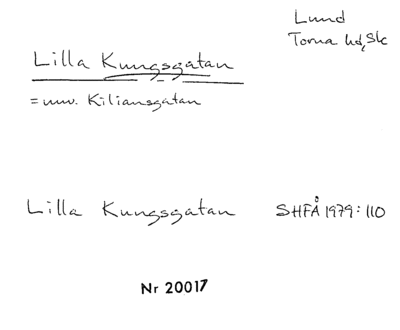 Lund
Torna hd, Sk
Lilla Kungsgatan
= nuv. Kiliansgatan
Lilla Kungsgatan SHFÅ 1979:110
Nr 20017